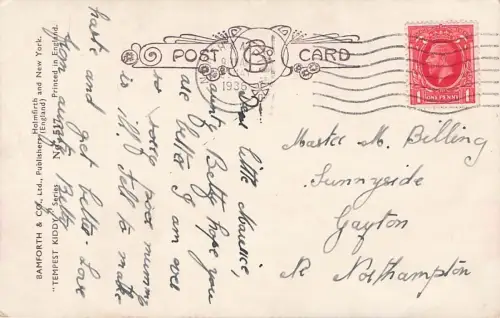 POST CARD
1936
1 ONE PENNY 1
Dear little Maurice,
aunty Betty hope you
are better I am ever
so sorry poor mummy
is ill. Tell to make
haste and get better. Love
from aunty Betty
Master M. Billing
Sunnyside
Gayton
Nr Northampton
BAMFORTH & CO., Ltd., Publishers, Holmfirth and New York.
(England)
"TEMPEST KIDDY" Series Printed in England.